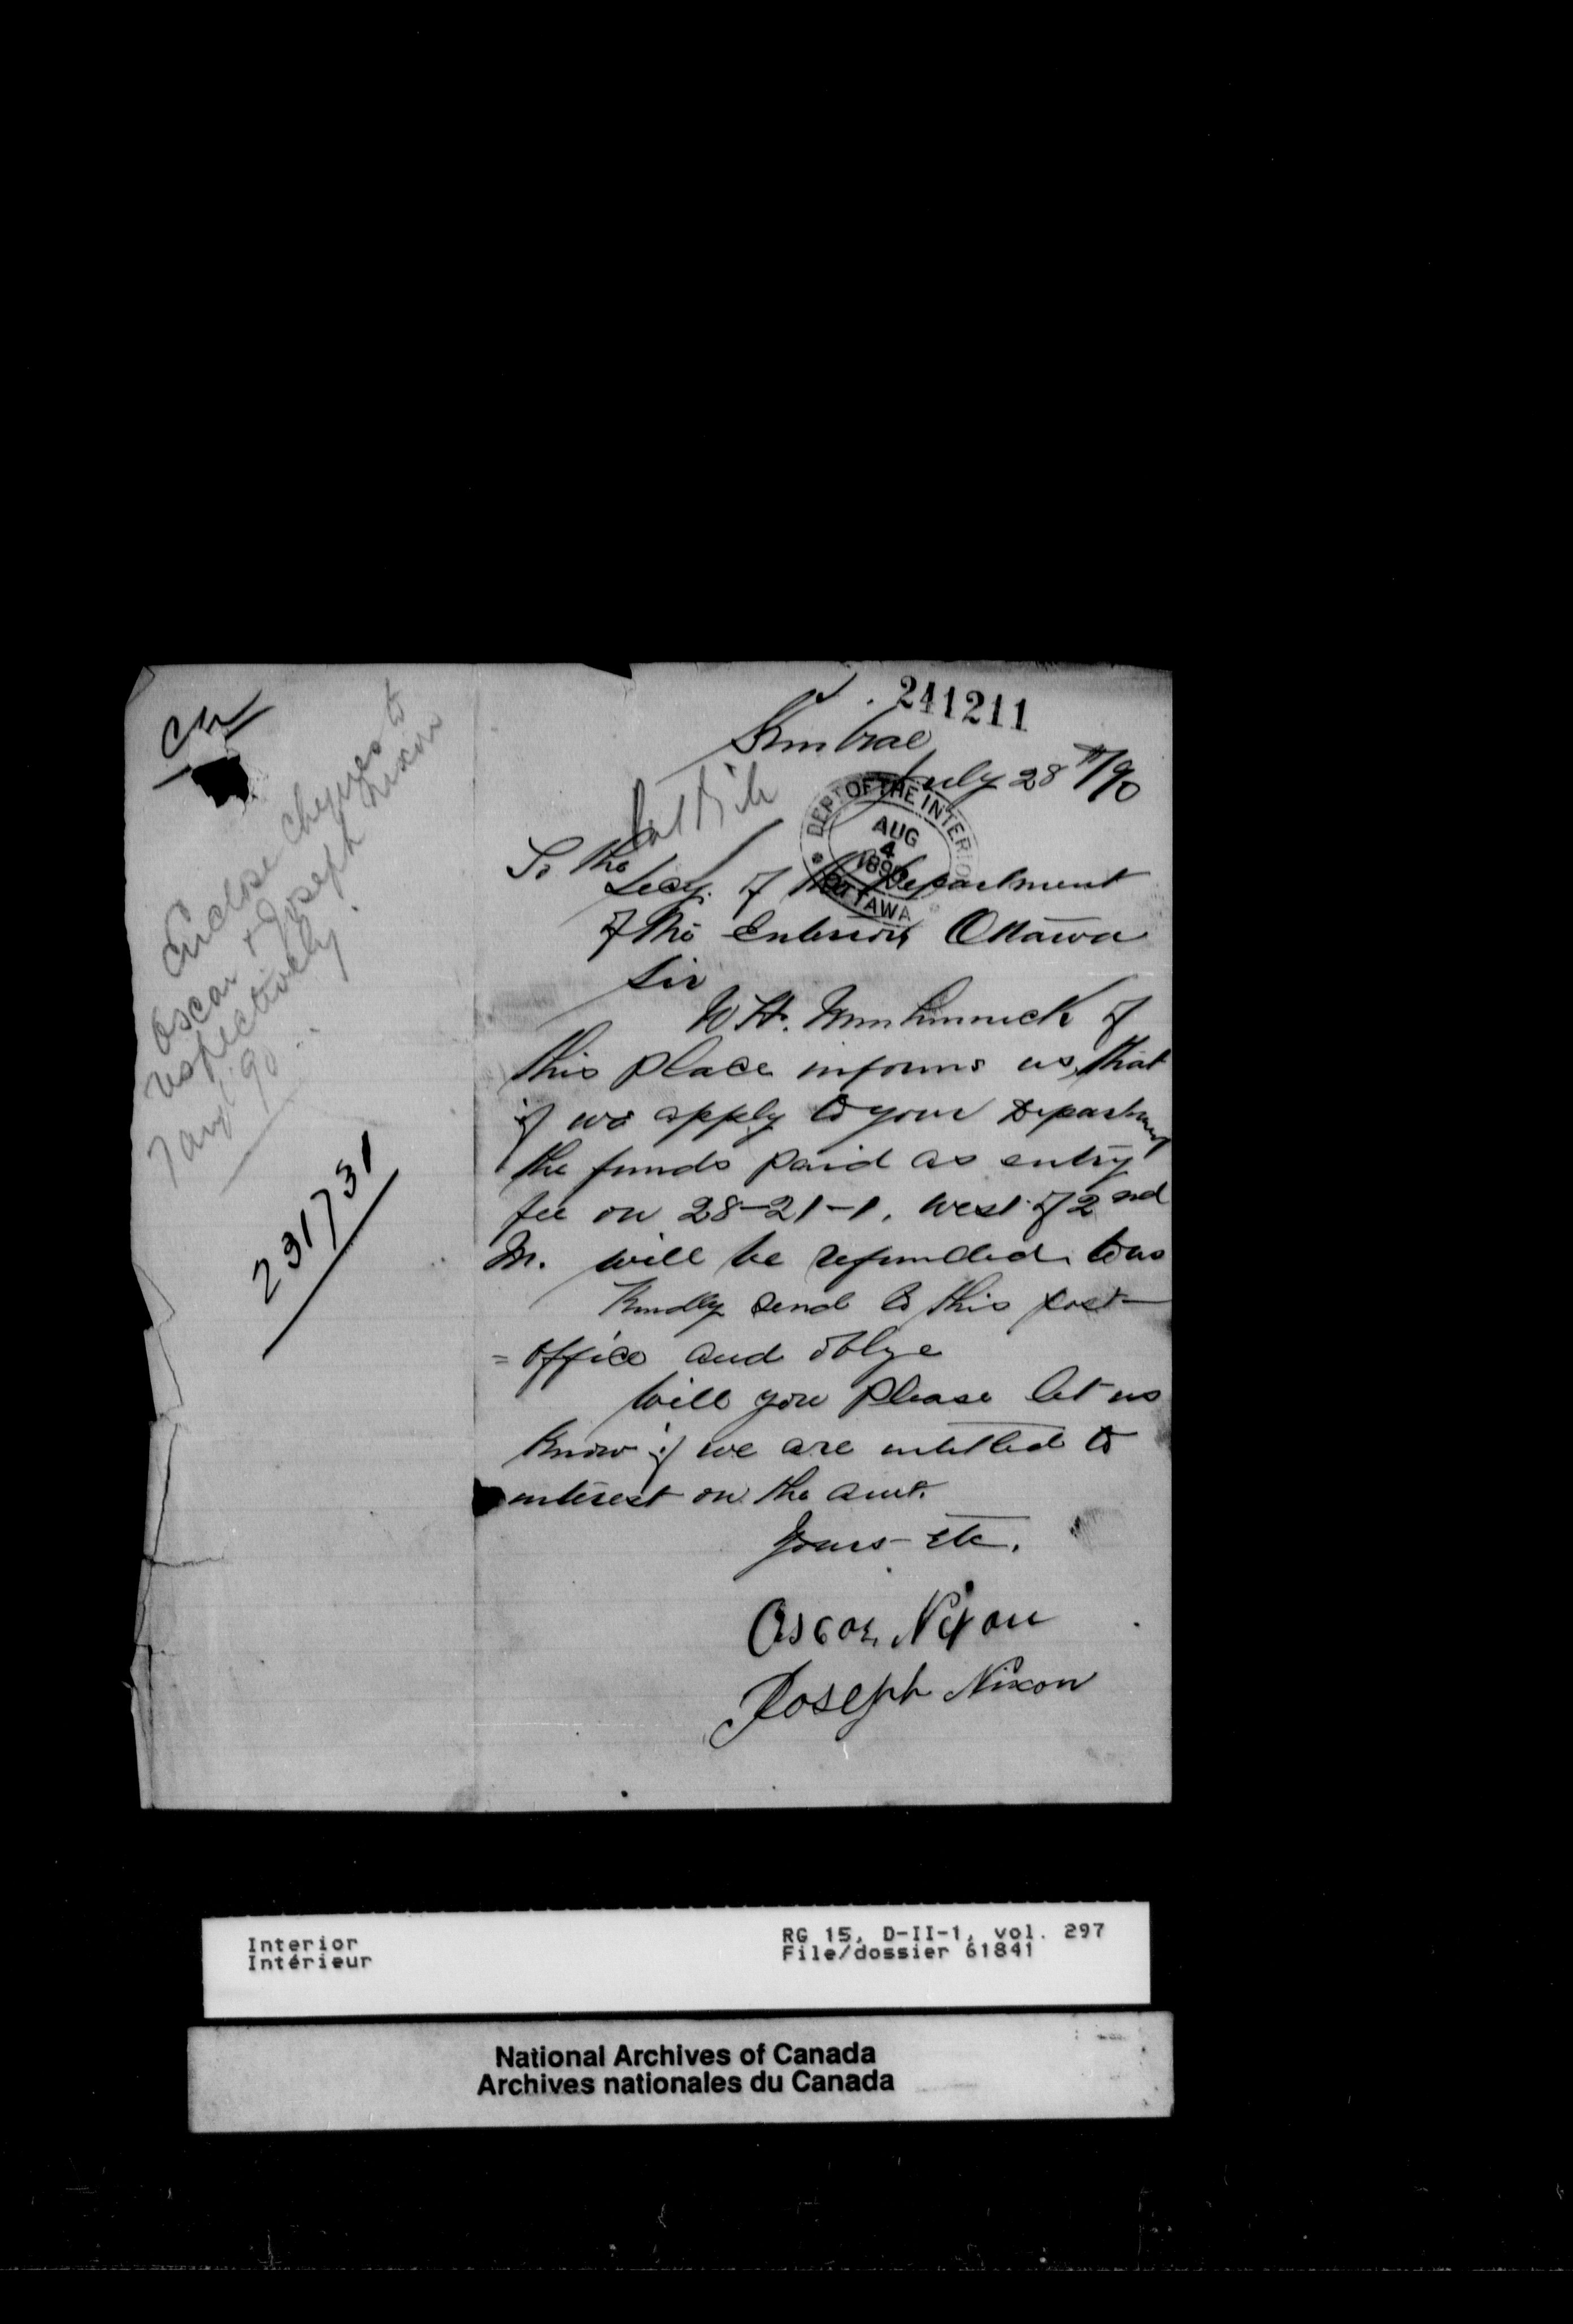 241211
Kinbrae
July 28th/90
DEPT OF THE INTERIOR
AUG
4
1890
OTTAWA
To the
Secy. of the Department
of the Interior Ottawa
Sir
W H. Minhinnick of
this place informs us that
if we apply to your Department
the funds paid as entry
fee on 28-21-1. West of 2nd
M. will be refunded to us
Kindly send to this post
= office and oblge
Will you please let us
know if we are intitled to
interest on the amt.
Yours Etc.
Oscar Nixon
Joseph Nixon
Enclose cheques to
Oscar + Joseph Nixon
respectively.
7 aug '90
231731
Interior
Intérieur
RG 15, D-II-1, vol. 297
File/dossier 61841
National Archives of Canada
Archives nationales du Canada